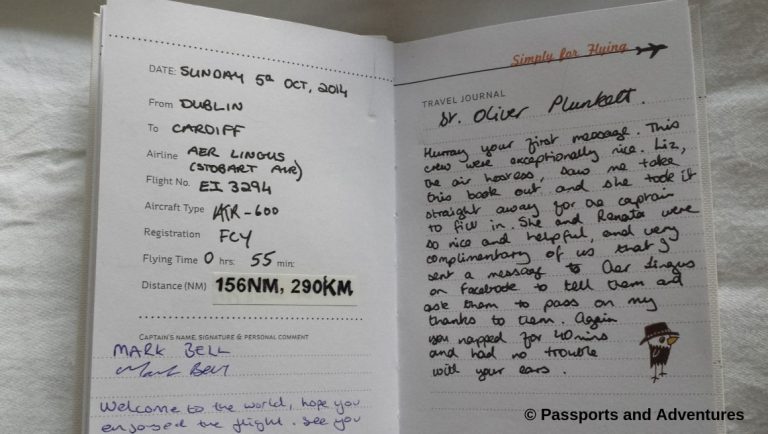 DATE: SUNDAY 5th OCT, 2014
From DUBLIN
To CARDIFF
Airline AER LINGUS
(STOBART AIR)
Flight No. EI 3294
Aircraft Type ATR-600
Registration FCY
Flying Time 0 hrs: 55 min:
Distance (NM) 156NM, 290KM
CAPTAIN'S NAME, SIGNATURE & PERSONAL COMMENT
MARK BELL
Mark Bell
Welcome to the world, hope you
enjoyed the flight. See you
Simply for Flying
TRAVEL JOURNAL
St. Oliver Plunkett.
Hurray your first message. This
crew were exceptionally nice. Liz,
the air hostess, saw me take
this book out and she took it
straight away for the captain
to fill in. She and Renata were
so nice and helpful, and very
complimentary of us that I
sent a message to Aer Lingus
on Facebook to tell them and
ask them to pass on my
thanks to them. Again
you napped for 40mins
and had no trouble
with your ears.
© Passports and Adventures